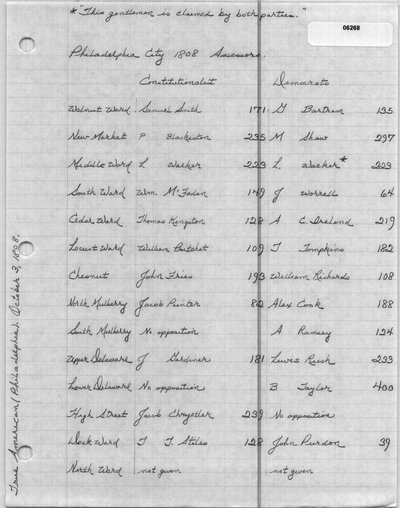 *"This gentleman is claimed by both parties."
06268
Philadelphia City 1808 Assessors.
Constitutionalist Democrats
Walnut Ward Samuel Smith 171 G Bartram 135
New Market P Blackiston 235 M Shaw 297
Middle Ward L Walker 223 L. Walker* 223
South Ward Wm. McFaden 149 J Worrell 64
Cedar Ward Thomas Kingston 128 A C. Ireland 219
Locust Ward William Pritchet 109 J Tompkins 182
Chesnut John Fries 193 William Richards 108
North Mulberry Jacob Punter 82 Alex Cook 188
South Mulberry No opposition A Ramsey 124
Upper Delaware J Gardiner 181 Lewis Rush 233
Lower Delaware No opposition B Taylor 400
High Street Jacob Chrystler 239 No opposition
Dock Ward T T. Stiles 128 John Purdon 39
North Ward not given not given
True American (Philadelphia). October 3, 1808.